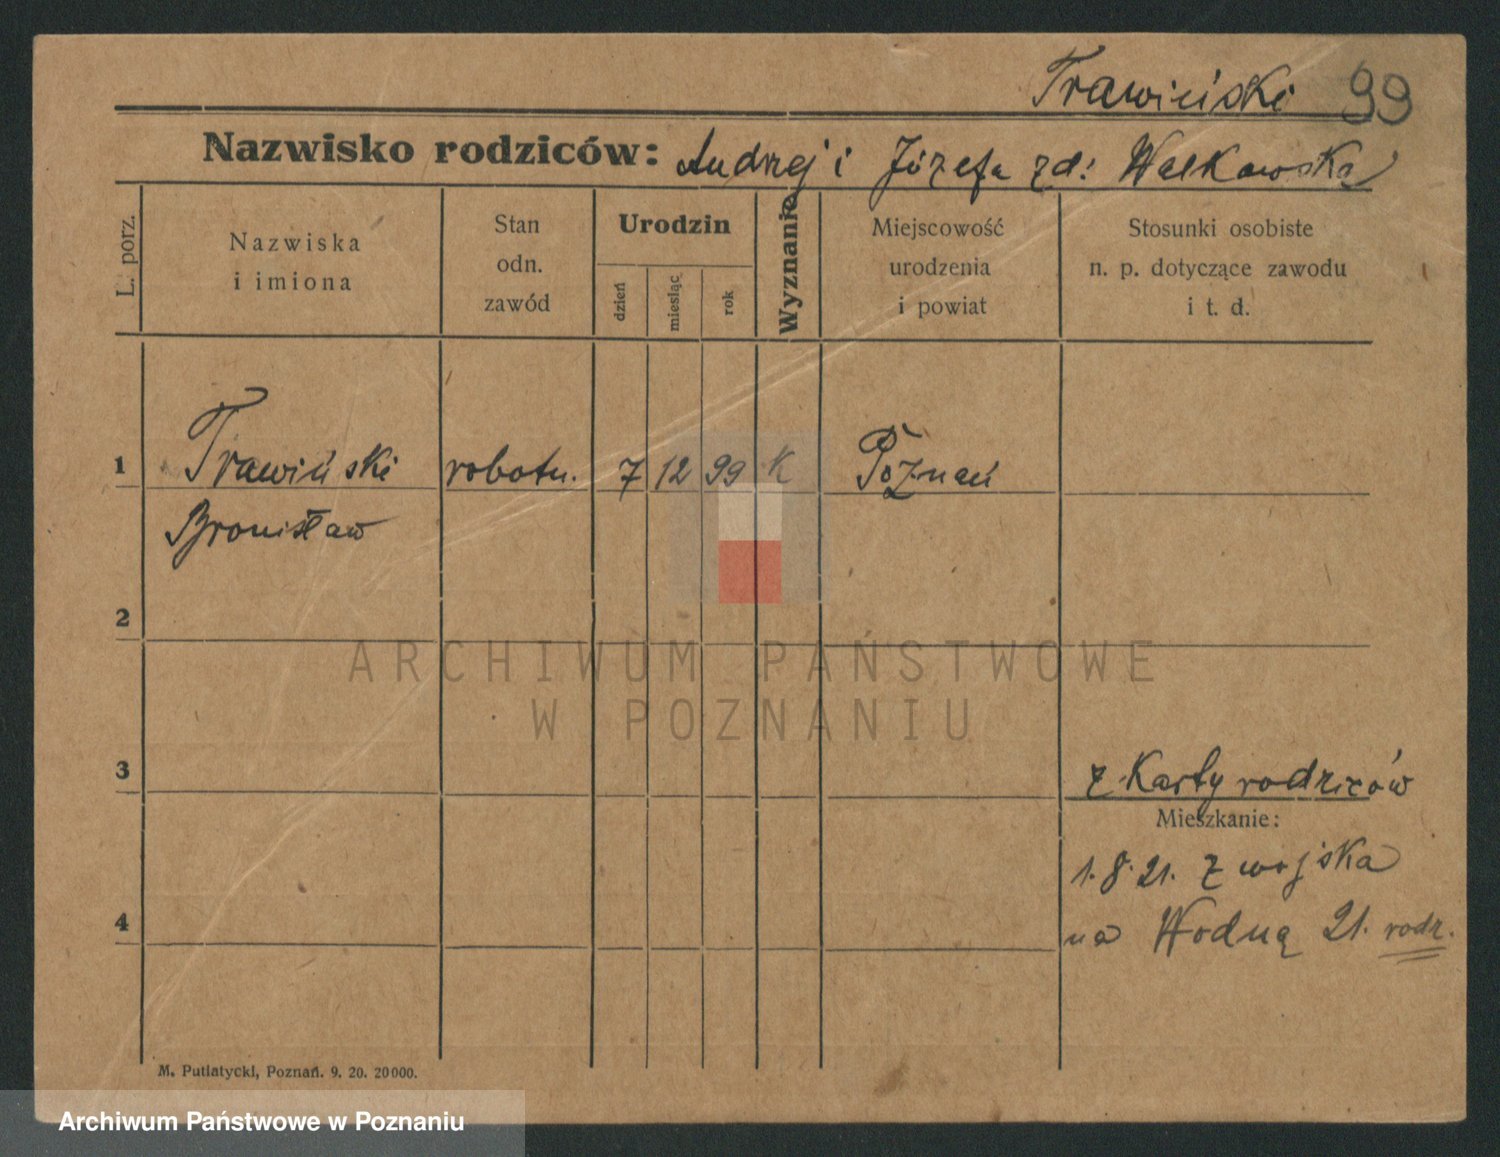 Trawiński 99
Nazwisko rodziców: Andrzej i Józefa zd: Walkowska
L. porz.
Nazwiska
i imiona
Stan
odn.
zawód
Urodzin
dzień
miesiąc
rok
Wyznanie
Miejscowość
urodzenia
i powiat
Stosunki osobiste
n. p. dotyczące zawodu
i t. d.
1 Trawiński robotn. 7 12 99 K Poznań
Bronisław
2
ARCHIWUM PAŃSTWOWE
W POZNANIU
3 z Karty rodziców
Mieszkanie:
1.8.21. z wojska
4 na Wodną 21. rodz.
M. Putiatycki, Poznań. 9. 20. 20000.
Archiwum Państwowe w Poznaniu